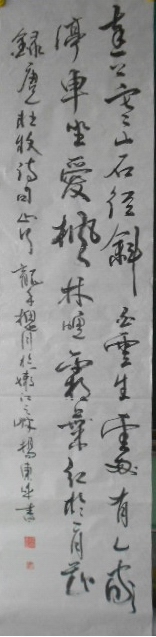 遠上寒山石徑斜白雲生處有人家
停車坐愛楓林晚霜葉紅於二月花
錄唐杜牧詩句山行龍年月於嫩江之畔楊東書